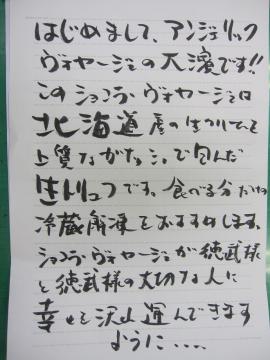 はじめまして、アンジェリック
ヴォヤージュの大濱です!!
このショコラ ヴォヤージュは
北海道産の生クリームを
上質なガナッシュで包んだ
生トリュフです。食べる分だけ
冷蔵解凍をおすすめします。
ショコラ・ヴォヤージュが徳武様
と徳武様の大切な人に
幸せを沢山運んできます
ように....